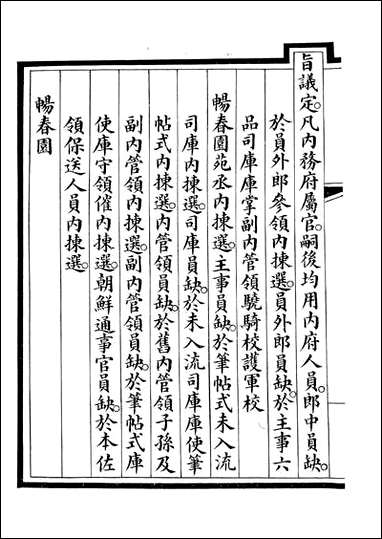 旨議定。凡内務府屬官。嗣後均用内府人員。郎中員缺。
於員外郎參領内揀選。員外郎員缺。於主事六
品司庫庫掌副内管領驍騎校護軍校
暢春園苑丞内揀選。主事員缺。於筆帖式未入流
司庫内揀選。司庫員缺。於未入流司庫庫使筆
帖式内揀選。内管領員缺。於舊内管領子孫及
副内管領内揀選。副内管領員缺。於筆帖式庫
使庫守領催内揀選。朝鮮通事官員缺。於本佐
領保送人員内揀選。
暢春園